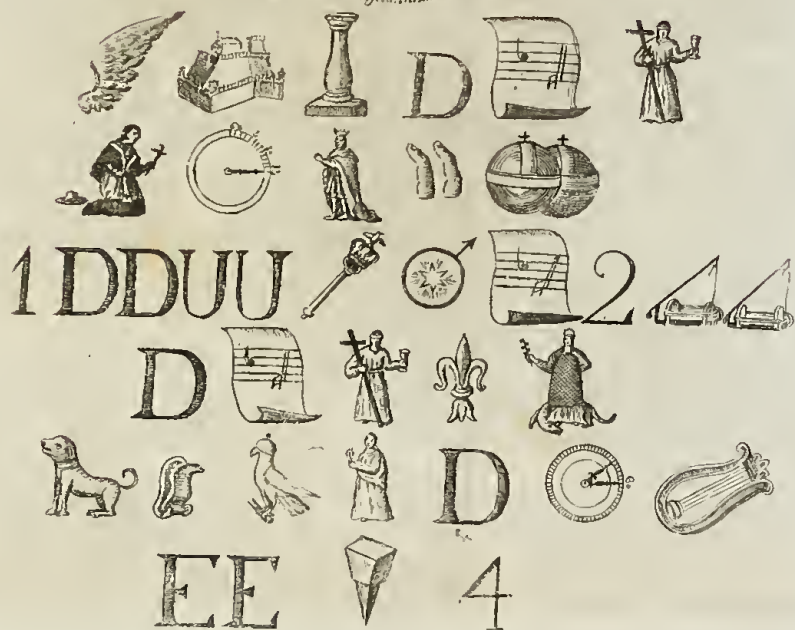 D
1 DDUU 2
D
D
EE 4